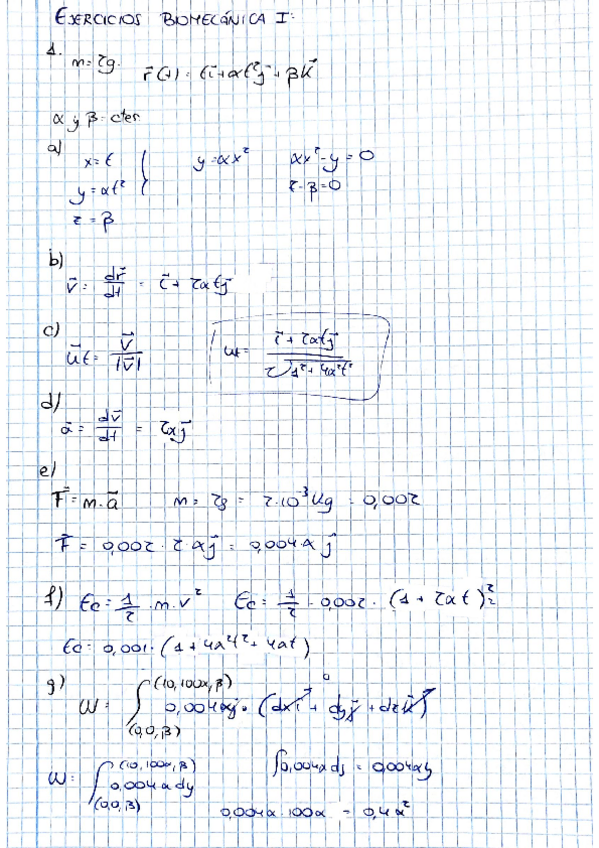 EJERCICIOS BIOMECÁNICA I:
1.
m = 2g. r⃗(t) = t i⃗ + αt² j⃗ + β k⃗
α y β = ctes
a)
x = t
y = αt²
z = β
y = αx²
αx² - y = 0
z - β = 0
b)
v⃗ = dr⃗/dt = i⃗ + 2αt j⃗
c)
u⃗t = v⃗/|v⃗| ut = (i⃗ + 2αt j⃗)/(²√1² + 4α²t²)
d)
a⃗ = dv⃗/dt = 2α j⃗
e)
F⃗ = m · a⃗ m = 2g = 2·10⁻³ Kg = 0,002
F⃗ = 0,002 · 2 · α j⃗ = 0,004 α j⃗
f) Ec = 1/2 · m · v² Ec = 1/2 · 0,002 · (1 + 2αt)²
Ec = 0,001 · (1 + 4α²t² + 4αt)
g)
W = ∫ (0,0,β) (10,100α,β) 0,004αj · (dx i⃗ + dy j⃗ + dz k⃗)
W = ∫ (0,0,β) (10,100α,β) 0,004 α dy ∫0,004α dy = 0,004αy
0,004α · 100α = 0,4α²